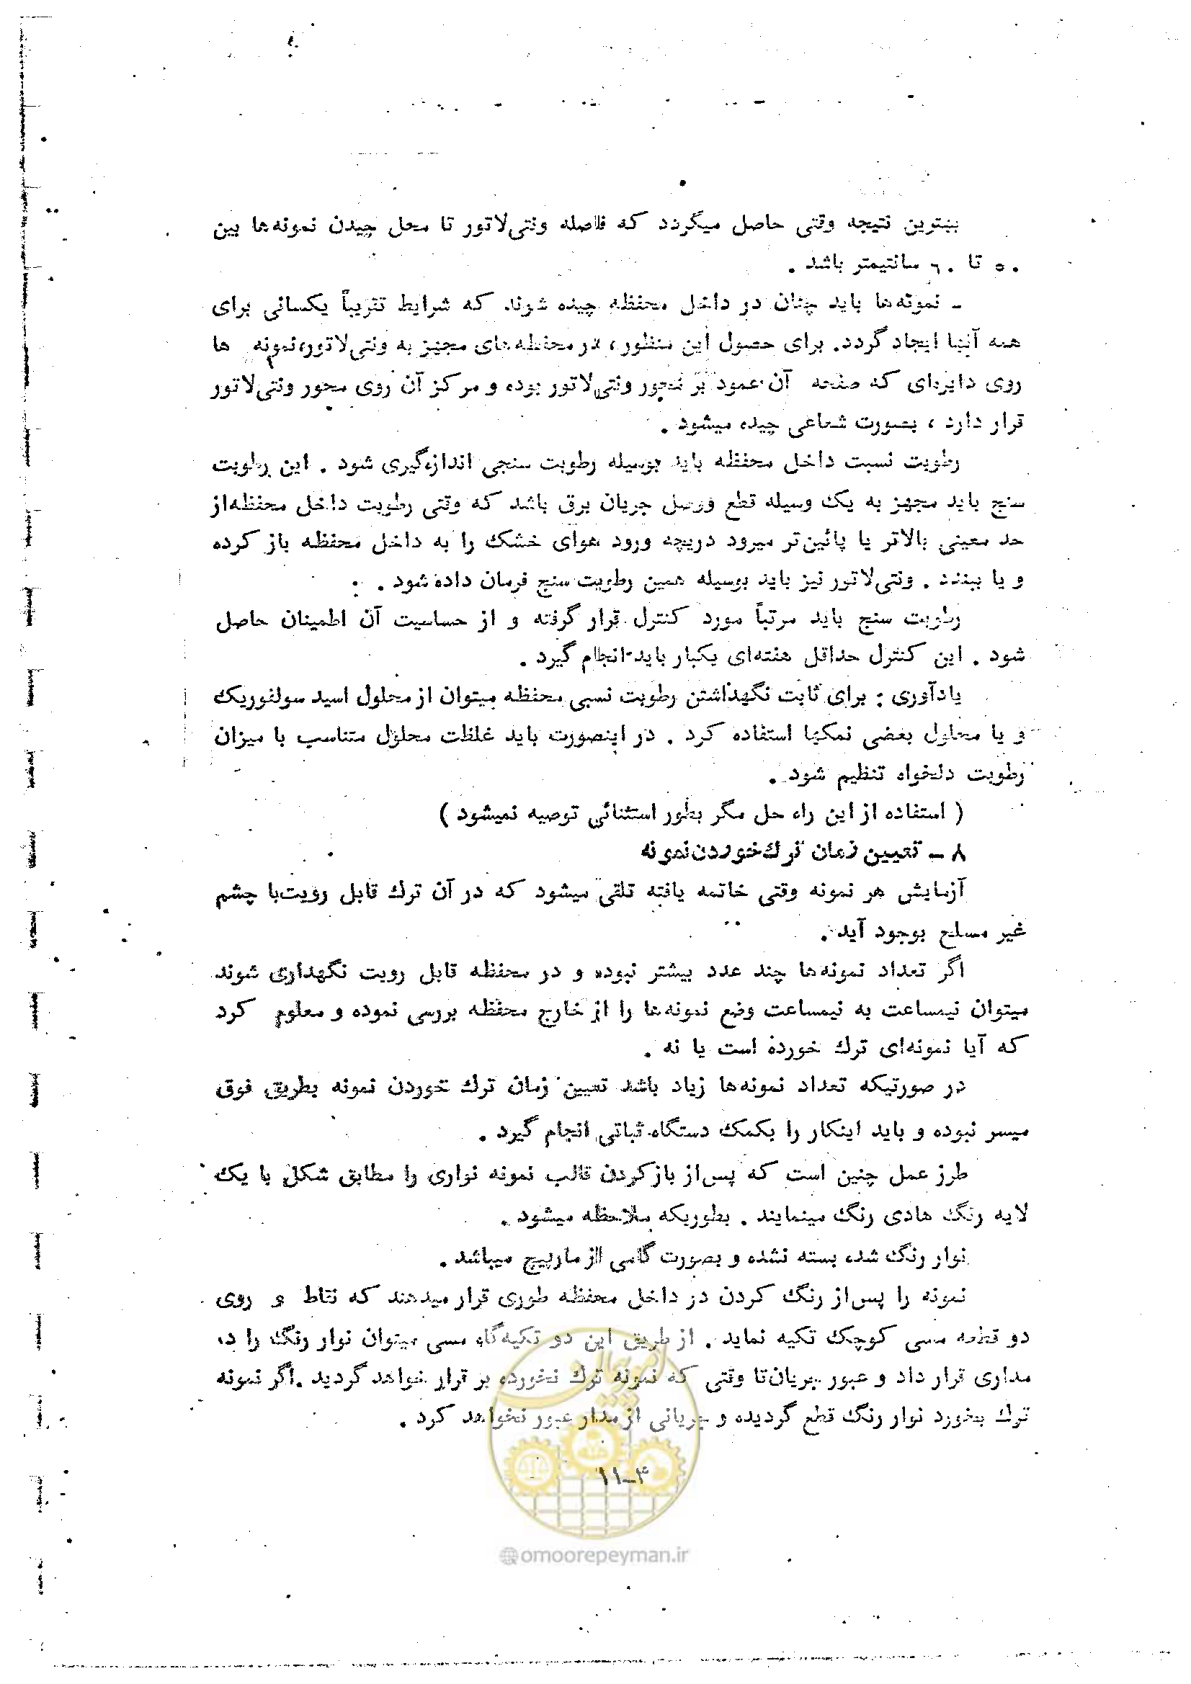 بهترین نتیجه وقتی حاصل میگردد که فاصله ونتی‌لاتور تا محل چیدن نمونه‌ها بین
۵۰ تا ۶۰ سانتیمتر باشد .
ـ نمونه‌ها باید چنان در داخل محفظه چیده شوند. که شرایط تقریباً یکسانی برای
همه آنها ایجاد گردد. برای حصول این منظور ، در محفظه‌های مجهز به ونتی‌لاتور، نمونه ها
روی دایره‌ای که صفحه آن عمود بر محور ونتی‌لاتور بوده و مرکز آن روی محور ونتی‌لاتور
قرار دارد ، بصورت شعاعی چیده میشود .
رطوبت نسبت داخل محفظه باید بوسیله رطوبت سنجی اندازه‌گیری شود . این رطوبت
سنج باید مجهز به یک وسیله قطع ووصل جریان برق باشد که وقتی رطوبت داخل محفظه‌از
حد معینی بالاتر یا پائین‌تر میرود دریچه ورود هوای خشک را به داخل محفظه باز کرده
و یا ببندد . ونتی‌لاتور نیز باید بوسیله همین رطوبت سنج فرمان داده شود .
رطوبت سنج باید مرتباً مورد کنترل قرار گرفته و از حساسیت آن اطمینان حاصل
شود . این کنترل حداقل هفته‌ای یکبار باید انجام گیرد .
یادآوری : برای ثابت نگهداشتن رطوبت نسبی محفظه میتوان از محلول اسید سولفوریک
و یا محلول بعضی نمکها استفاده کرد . در اینصورت باید غلظت محلول متناسب با میزان
رطوبت دلخواه تنظیم شود .
( استفاده از این راه حل مگر بطور استثنائی توصیه نمیشود )
۸ ـ تعیین زمان ترک‌خوردن نمونه
آزمایش هر نمونه وقتی خاتمه یافته تلقی میشود که در آن ترک قابل رویت‌با چشم
غیر مسلح بوجود آید .
اگر تعداد نمونه‌ها چند عدد بیشتر نبوده و در محفظه قابل رویت نگهداری شوند
میتوان نیمساعت به نیمساعت وضع نمونه‌ها را از خارج محفظه بررسی نموده و معلوم کرد
که آیا نمونه‌ای ترک خورده است یا نه .
در صورتیکه تعداد نمونه‌ها زیاد باشد تعیین زمان ترک خوردن نمونه بطریق فوق
میسر نبوده و باید اینکار را بکمک دستگاه ثباتی انجام گیرد .
طرز عمل چنین است که پس‌از بازکردن قالب نمونه نواری را مطابق شکل با یک
لایه رنگ هادی رنگ مینمایند . بطوریکه ملاحظه میشود .
نوار رنگ شده بسته نشده و بصورت گامی از مارپیچ میباشد .
نمونه را پس‌از رنگ کردن در داخل محفظه طوری قرار میدهند که نقاط و روی
دو قطعه مسی کوچک تکیه نماید . از طریق این دو تکیه‌گاه مسی میتوان نوار رنگ را در
مداری قرار داد و عبور جریان‌تا وقتی که نمونه ترک نخورده بر قرار خواهد گردید .اگر نمونه
ترک بخورد نوار رنگ قطع گردیده و جریانی از مدار عبور نخواهد کرد .
امور پیمان
۱۱ـ۳
@omoorepeyman.ir